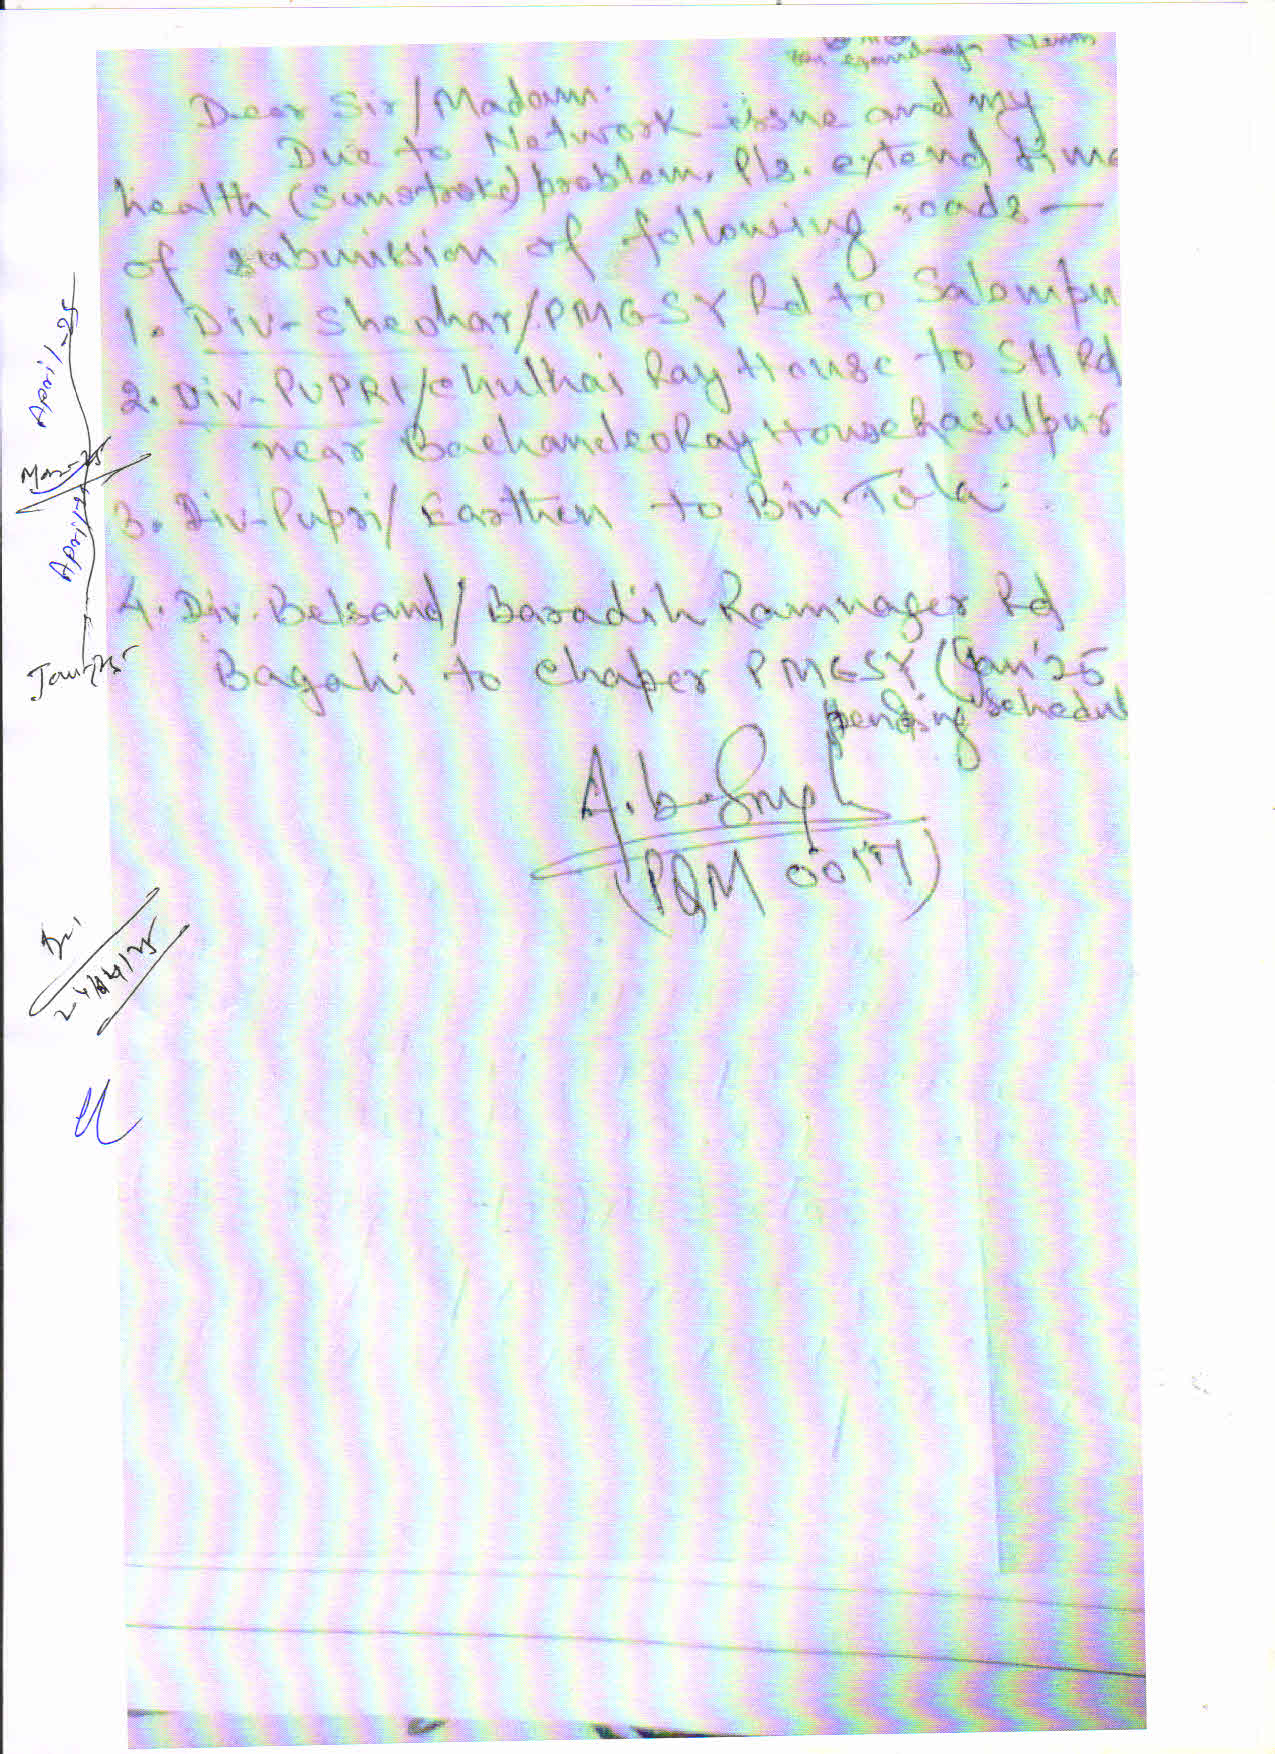 Dear Sir/Madam.
Due to Network issue and my
health (Sunstroke) problem, Pls. extend time
of submission of following roads —
1. Div- Sheohar/PMGSY Rd to Salampu
2. Div-PUPRI/Chulhai Ray House to SH Rd
near Bachandeo Ray House Rasulpur
3. Div-Pupri/ Earthen to Bin Tola.
4. Div. Belsand/ Baradih Ramnager Rd
Bagahi to Chaper PMGSY (Jan'25
pending schedul
(PQM 0017)
April-25
Mar-25
April-25
Jan-25
24/04/25